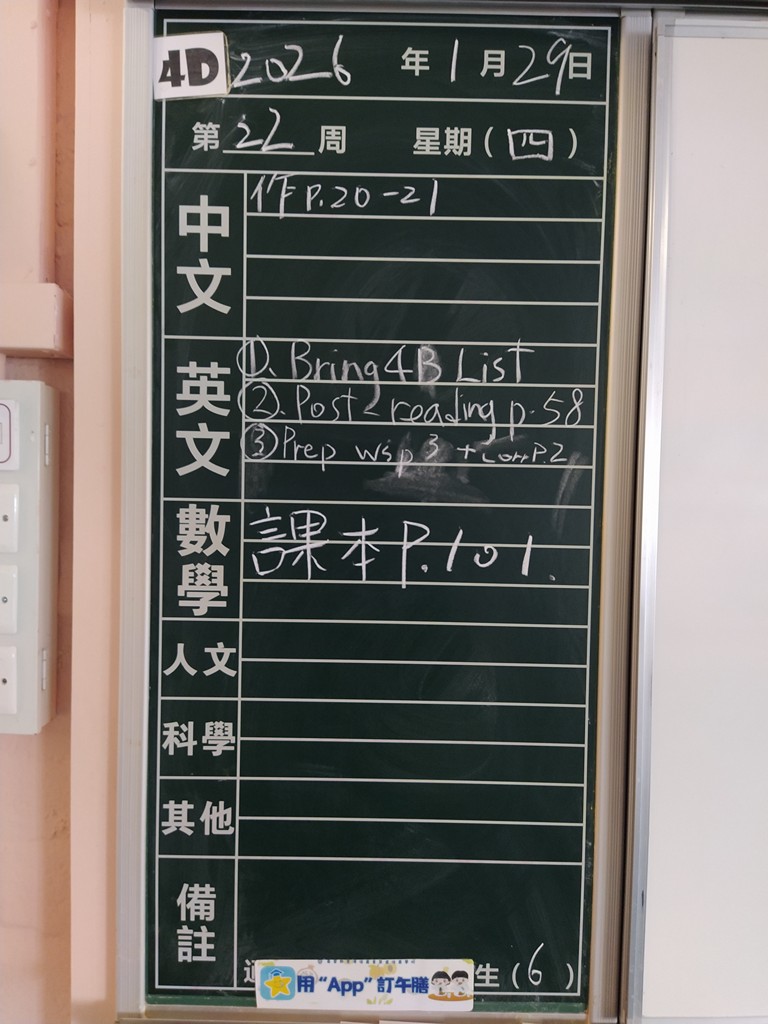 4D 2026 年 1 月 29 日
第 22 周 星期 ( 四 )
中文
作 P.20-21
英文
①. Bring 4B List
②. Post-reading p.58
③ Prep ws p3 + corr P.2
數學
課本 P.101.
人文
科學
其他
備註
用 “App” 訂午膳
生 ( 6 )